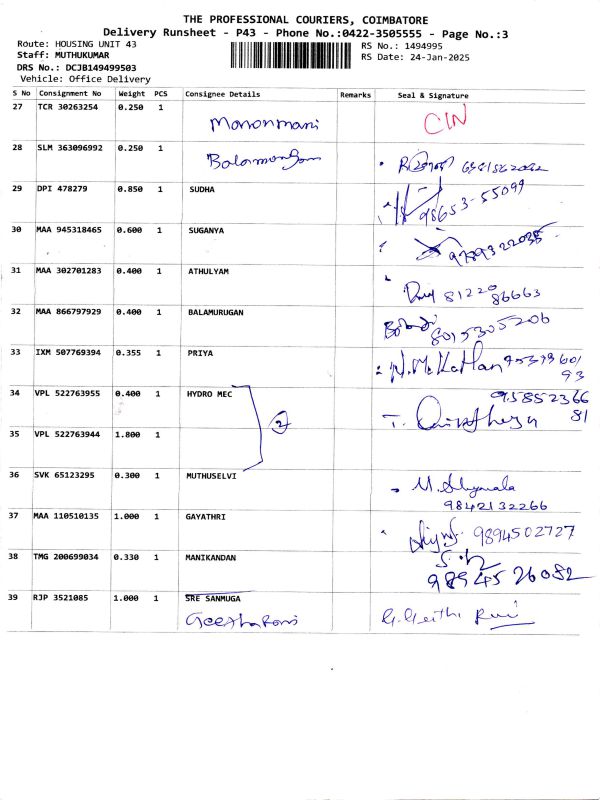 THE PROFESSIONAL COURIERS, COIMBATORE
Delivery Runsheet - P43 - Phone No.:0422-3505555 - Page No.:3
Route: HOUSING UNIT 43 RS No.: 1494995
Staff: MUTHUKUMAR RS Date: 24-Jan-2025
DRS No.: DCJB149499503
Vehicle: Office Delivery
S No Consignment No Weight PCS Consignee Details Remarks Seal & Signature
27 TCR 30263254 0.250 1
Manonmani CIN
28 SLM 363096992 0.250 1
Balamurugan
29 DPI 478279 0.850 1 SUDHA
98653-55099
30 MAA 945318465 0.600 1 SUGANYA
9789322035
31 MAA 302701283 0.400 1 ATHULYAM
81220
86663
32 MAA 866797929 0.400 1 BALAMURUGAN
8015305206
33 IXM 507769394 0.355 1 PRIYA
93
34 VPL 522763955 0.400 1 HYDRO MEC 95852366
2 81
35 VPL 522763944 1.800 1
36 SVK 65123295 0.300 1 MUTHUSELVI
M. Shyamala
9842132266
37 MAA 110510135 1.000 1 GAYATHRI
9894502727
38 TMG 200699034 0.330 1 MANIKANDAN
98945 26082
39 RJP 3521085 1.000 1 SRE SANMUGA
Geetharani G. Geetha Rani